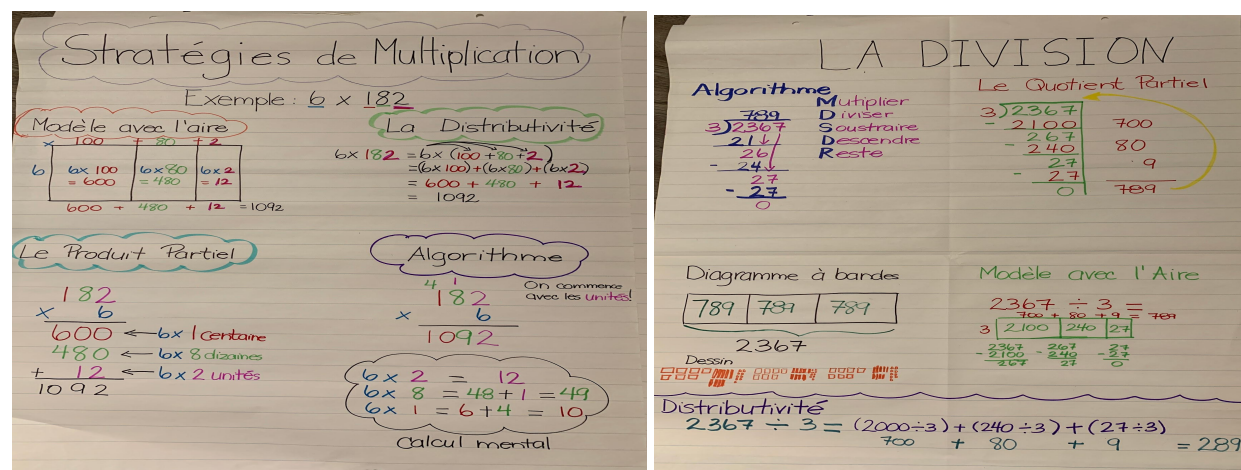 Stratégies de Multiplication
Exemple: 6 x 182
Modèle avec l'aire
x 100 + 80 + 2
6 6x100 6x80 6x2
= 600 = 480 = 12
600 + 480 + 12 = 1092
La Distributivité
6 x 182 = 6x (100 + 80 + 2)
= (6x 100) + (6x80) + (6x2)
= 600 + 480 + 12
= 1092
Le Produit Partiel
182
x 6
600 ← 6x 1 centaine
480 ← 6x 8 dizaines
+ 12 ← 6x 2 unités
1092
Algorithme
On commence
avec les unités!
4 1
182
x 6
1092
6x 2 = 12
6x 8 = 48 + 1 = 49
6x 1 = 6 + 4 = 10
Calcul mental
LA DIVISION
Algorithme
789
3)2367
21
26
- 24
27
- 27
0
Mutiplier
Diviser
Soustraire
Descendre
Reste
Le Quotient Partiel
3)2367
- 2100 700
267
- 240 80
27 9
- 27
0 789
Diagramme à bandes
789 789 789
2367
Dessin
Modèle avec l'Aire
2367 ÷ 3 =
700 + 80 + 9 = 789
3 2100 240 27
2367 267 27
- 2100 - 240 - 27
267 27 0
Distributivité
2367 ÷ 3 = (2000÷3) + (240÷3) + (27÷3)
700 + 80 + 9 = 289